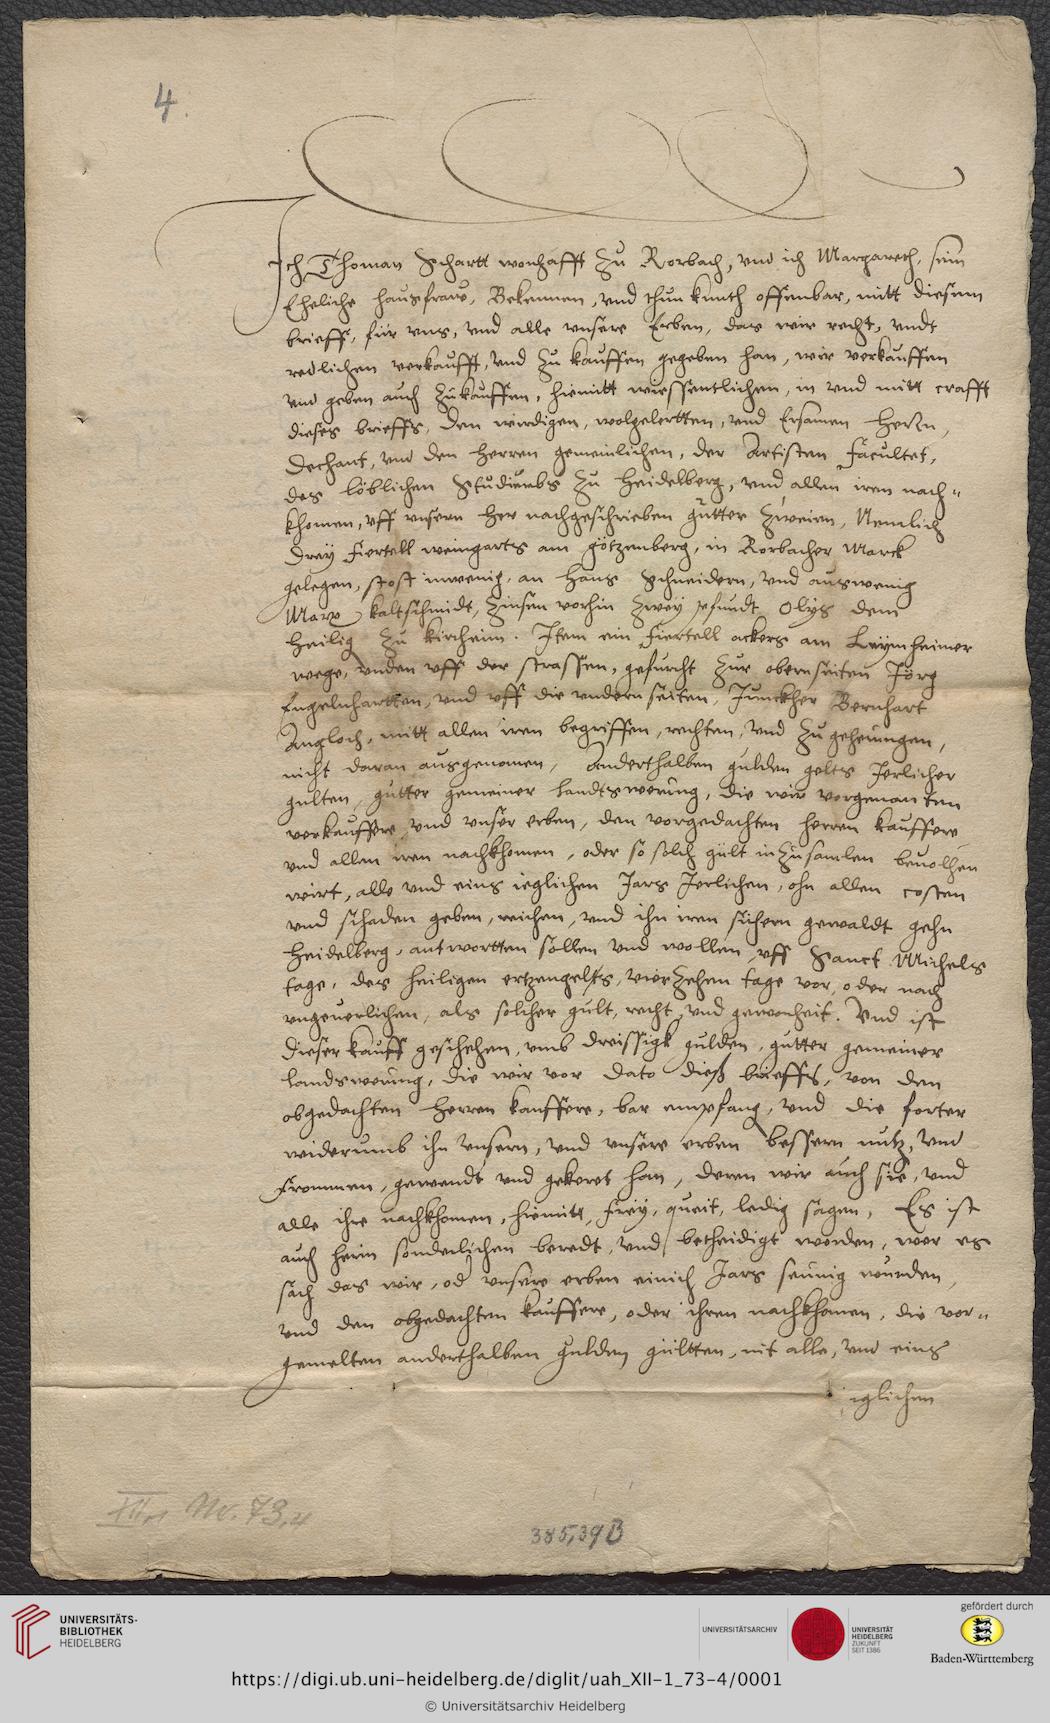 4.
Ich Thoman Schartt wonhafft zu Rorbach, vnd ich Margareth, sein
Eheliche hausfraw, Bekennen, vnd thun kunth offenbar, mitt diesem
brieff, für vns, vnd alle vnsere Erben, das wir recht, vndt
redlichen verkaufft, vnd zu kauffen gegeben han, wir verkauffen
vnd geben auch zukauffen, hiemitt wiessentlichen, in vnd mitt crafft
dieses brieffs, den wirdigen, wolgelertten, vnd Ersamen Herrn,
Dechant, vnd den Herren gemeinlichen, der Artisten Facultet,
des löblichen Studiumbs zu Heidelberg, vnd allen iren nach„
khomen, vff vnsern her nachgeschrieben gütter zweien, Nemlich
Drey Fiertell weingarts am götzenberg, in Rorbacher Marck
gelegen, stost inwenig, an Hans Schneidern, vnd auswenig
Marx kaltschmidt, Zinsen vorhin zwey pfundt Olys dem
Heilig zu kircheim. Item ein Fiertell ackers am Leymheimer
wege, vnden vff der strassen, gefurcht zur obernseiten Jörg
Engelnhartten, vnd vff die vndern seiten, Junckher Bernhart
Angloch, mitt allen iren begriffen, rechten, vnd zugehörungen,
nicht daran ausgenomen, Anderthalben gulden gelts Jerlicher
gulten, gutter gemeiner landtswerung, die wir vorgenanten
verkauffere, vnd vnser erben, den vorgedachten herren kauffere
vnd allen iren nachkhomen, oder so solch gült inzusamlen beuolhen
wirt, alle vnd eins ieglichen Jars Jerlichen, ohn allen costen
vnd schaden geben, reichen, vnd ihn iren sichern gewaldt gehn
Heidelberg, antwortten sollen vnd wollen, vff Sanct Michels
tage, des heiligen ertzengelss, vierzehen tage vor, oder nach
vngeuerlichen, als solcher gült, recht, vnd gewonheit. Vnd ist
dieser kauff geschehen, vmb dreissigk gulden, gutter gemeiner
landswerung, die wir vor dato dieß brieffs, von den
obgedachten Herren kauffere, bar empfang, vnd die forter
widerumb ihn vnsern, vnd vnsere erben bessern nutz, vnd
frommen, gewendt vnd gekeret han, deren wir auch sie, vnd
alle ihre nachkhomen, hiemitt, frey, queit, ledig sagen, Es ist
auch herin sonderlichen beredt, vnd betheidigt worden, wer es
sach das wir, od vnsere erben einich Jars seumig wurden,
vnd den obgedachten kauffere, oder ihren nachkhomen, die vor„
gemelten anderthalben gulden gültten, nit alle, vnd eins
iglichen
XII,1 Nr. 73,4
385,39 B
UNIVERSITÄTS-
BIBLIOTHEK
HEIDELBERG
UNIVERSITÄTSARCHIV
UNIVERSITÄT
HEIDELBERG
ZUKUNFT
SEIT 1386
gefördert durch
Baden-Württemberg
https://digi.ub.uni-heidelberg.de/diglit/uah_XII-1_73-4/0001
© Universitätsarchiv Heidelberg